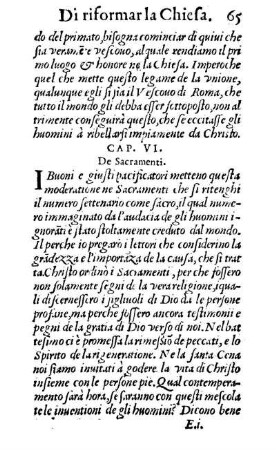 Di riformar la Chiesa. 65
do del primato, bisogna cominciar di quiui che
sia veramẽte vescouo, al quale rendiamo il pri
mo luogo & honore ne la Chiesa. Imperoche
quel che mette questo legame de la vnione,
qualunque egli si sia il Vescouo di Roma, che
tutto il mondo gli debba esser sottoposto, non al
trimente conseguirà questo, che se eccitasse gli
huomini à ribellarsi impiamente da Christo.
CAP. VI.
De Sacramenti.
I Buoni e giusti pacificatori metteno questa
moderatione ne Sacramenti che si ritenghi
il numero settenario come sacro, il qual nume-
ro immaginato da l'audacia de gli huomini i-
gnorãti è stato stoltamente creduto dal mondo.
Il perche io pregarò i lettori che considerino la
grãdezza e l'importãza de la causa, che si trat
ta. Christo ordinò i Sacramenti, per che fossero
non solamente segni de la vera religione, i qua-
li discernessero i figliuoli di Dio da le persone
profane, ma perche fossero ancora testimoni e
pegni de la gratia di Dio verso di noi. Nel bat
tesimo ci è promessa la rimessiõ de peccati, e lo
Spirito de la rigeneratione. Ne la santa Cena
noi siamo inuitati à godere la vita di Christo
insieme con le persone pie. Qual contempera-
mento sarà hora, se saranno con questi mescola
te le inuentioni de gli huomini? Dicono bene
E.i.